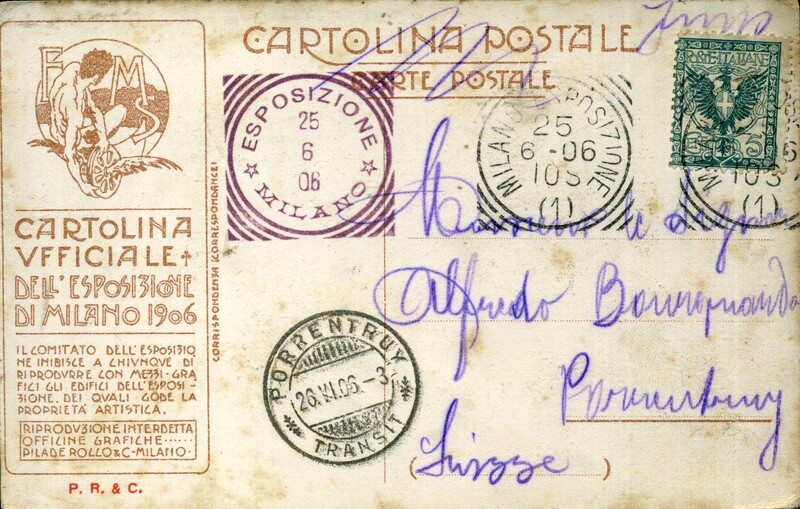 CARTOLINA POSTALE
CARTE POSTALE
E M S
CARTOLINA
VFFICIALE
DELL'ESPOSIZIONE
DI MILANO 1906
IL COMITATO DELL'ESPOSIZIO
NE INIBISCE A CHIVNQVE DI
RIPRODVRRE CON MEZZI·GRA
FICI GLI EDIFICI DELL'ESPOSI-
ZIONE, DEI QVALI GODE LA
PROPRIETÀ ARTISTICA.
RIPRODVZIONE INTERDETTA
OFFICINE GRAFICHE
PILADE ROCCO & C-MILANO-
P. R. & C.
CORRISPONDENZA (CORRESPONDANCE)
ESPOSIZIONE
25
6
06
MILANO
MILANO ESPOSIZIONE
25
6-06
10S
(1)
POSTE ITALIANE
5
10S
(1)
PORRENTRUY
26.VI.06.-3
TRANSIT
Monsieur le
Alfredo
Porrentruy
Suisse